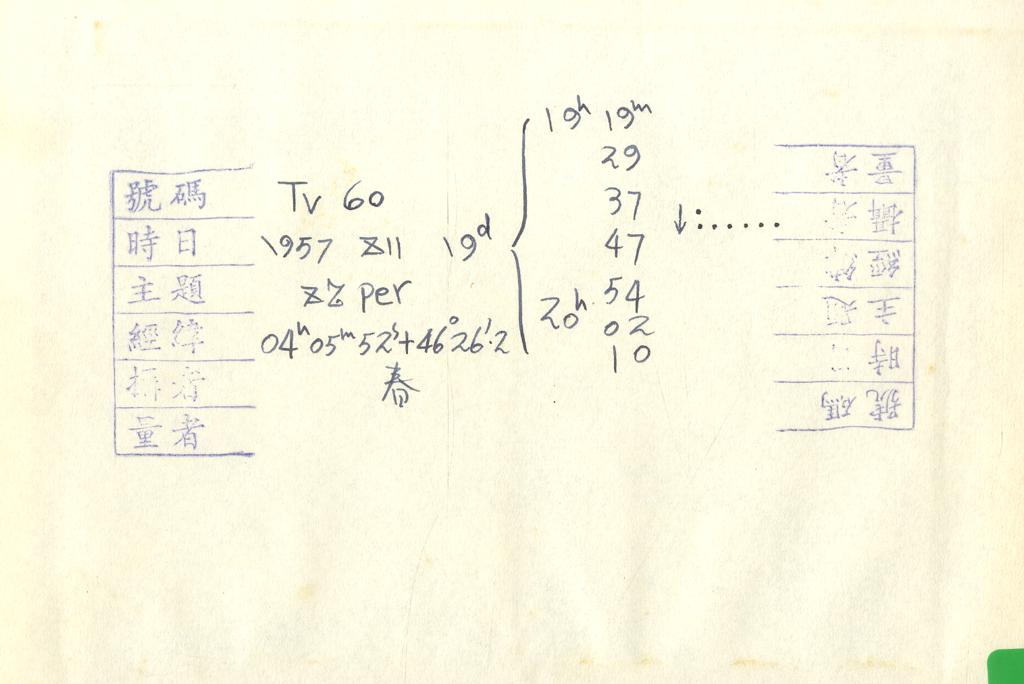 19ʰ 19ᵐ
29
37
47
54
20ʰ 02
10
號碼 Tv 60
時日 1957 XII 19ᵈ
主題 XZ per
經緯 04ʰ05ᵐ52ˢ+46°26'.2
攝者 春
量者
↓:......
量者
攝者
經緯
主題
時日
號碼